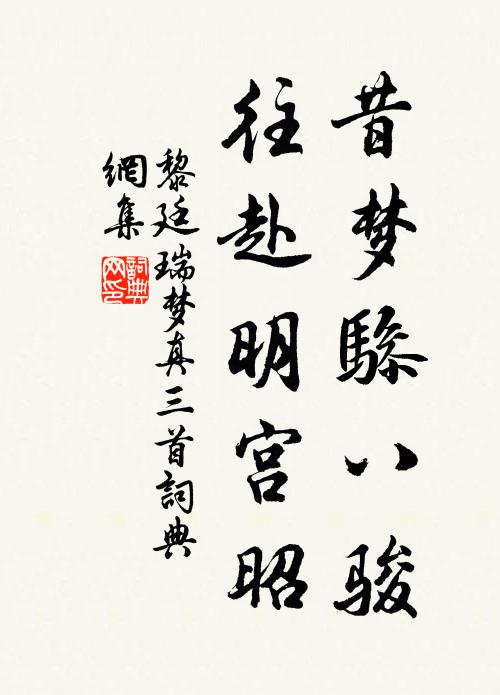 昔梦驂八骏
往赴明宫昭
黎廷瑞梦真三首詞典
網集
詞典
网印